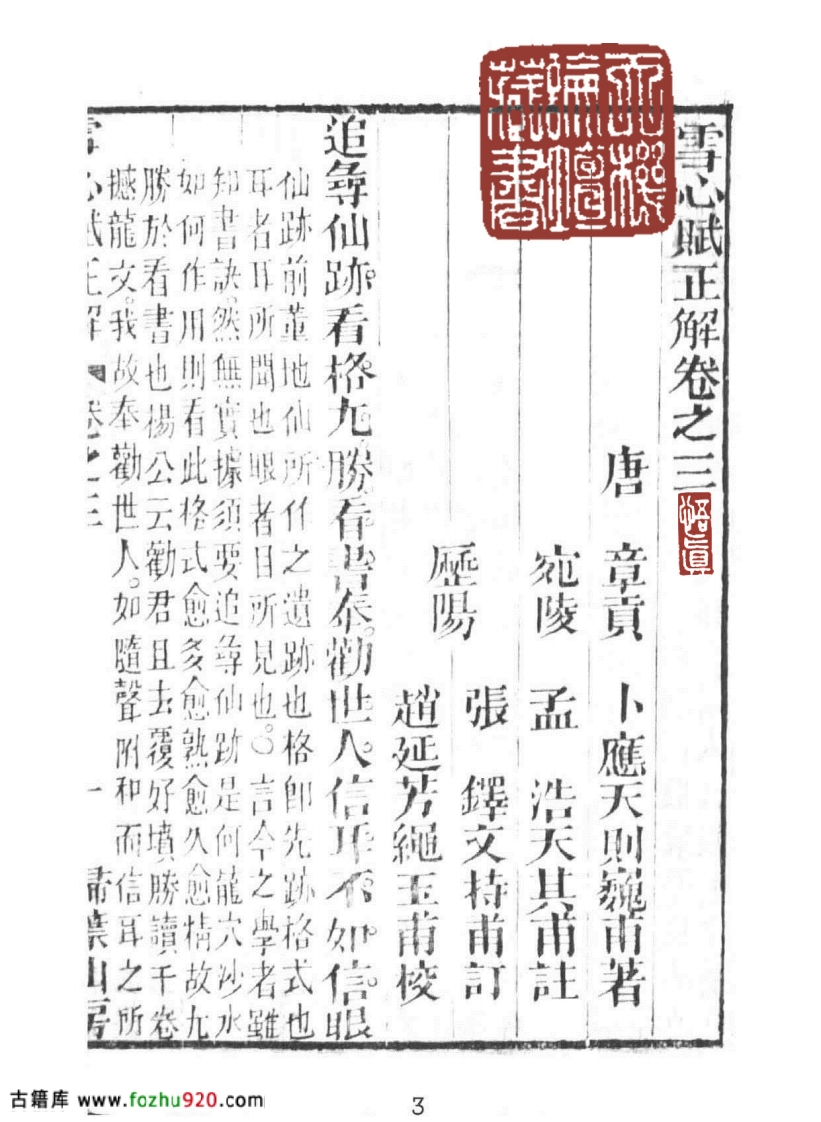 雪心賦正解卷之三
唐 章貢 卜應天則巍甫著
宛陵 孟 浩天其甫註
張 鐸文持甫訂
歷陽
趙延芳繩玉甫校
追尋仙跡看格尤勝看書奉勸世人信耳不如信眼
仙跡前輩地仙所作之遺跡也格卽先跡格式也
耳者耳所聞也眼者目所見也○言今之學者雖
知書訣然無實據須要追尋仙跡是何龍穴沙水
如何作用則看此格式愈多愈熟愈久愈精故尤
勝於看書也楊公云勸君且去覆好墳勝讀千卷
撼龍文我故奉勸世人如隨聲附和而信耳之所
雪心賦正解 卷之三 一 掃葉山房
悟真
藏書
古籍库 www.fozhu920.com
3